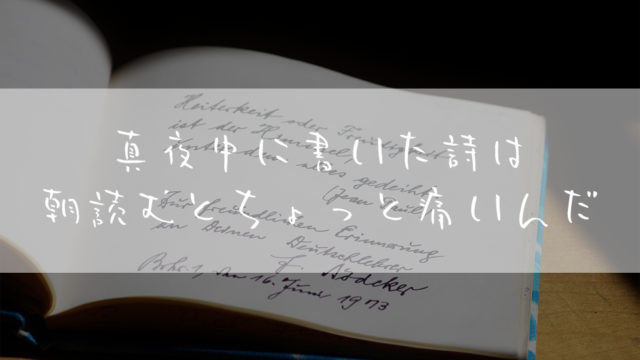 真夜中に書いた詩は
朝読むとちょっと痛いんだ
Heiterkeit oder Freudigkeit
ist der Himmel,
unter dem alles gedeiht
(Jean Paul)
Zur freundlichen Erinnerung
an Deinen Deutschlehrer
den 16. Juni 1973